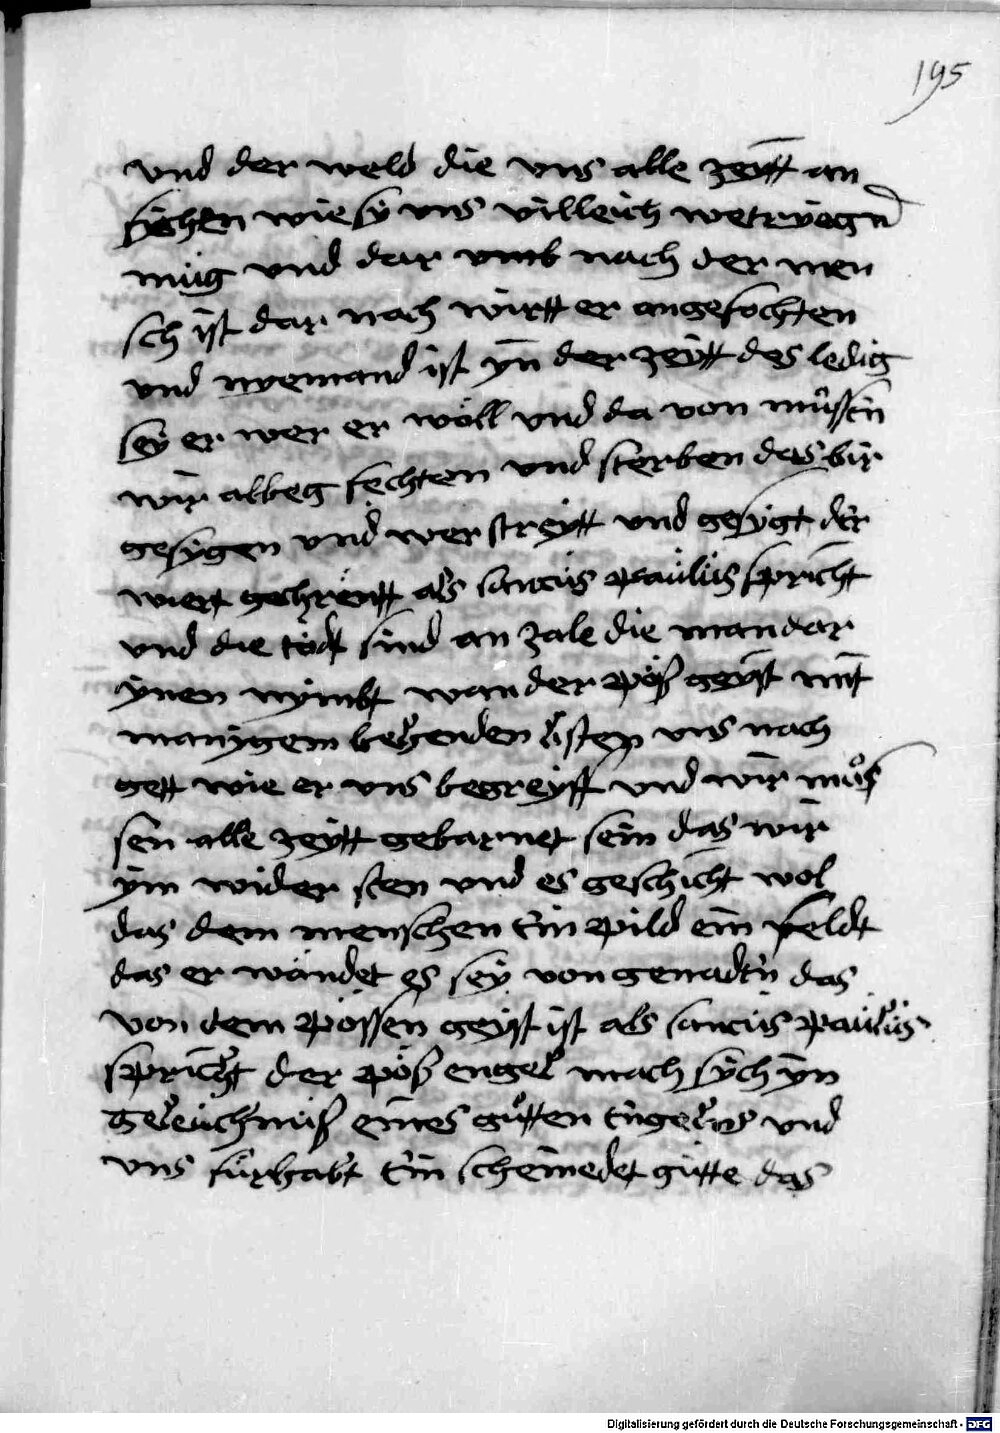 195
vnd der weld die vns alle zeytt an
sychtn wie sy vns villeich wetryegn
müg vnd dar vmb nach der men
sch ist dar nach wirtt er angefochten
vnd nyemand ist yn der zeytt des ledig
sey er wer er wöll vnd da von müssen
wir albeg fechten vnd sterben das bir
gesygen vnd wer streytt vnd gesygt der
wiert gechröntt als sanctus paulus spricht
vnd die tödt sind an zale die man dar
ynen nymbt wan der pöß geyst mit
manygem behenden listen vns nach
gett wie er vns begreyff vnd wir müs
sen alle zeytt gebarnet sein das wir
ym wider sten vnd es geschicht wol
das dem menschen ein pild ein veldt
das er wändet es sey von genaden das
von dem pössen geyst ist als sanctus paulus
spricht der pöß engel mach sych yn
geleichnuß eines gutten engels vnd
vns fürhabt ein scheinedet gütte das
Digitalisierung gefördert durch die Deutsche Forschungsgemeinschaft - DFG